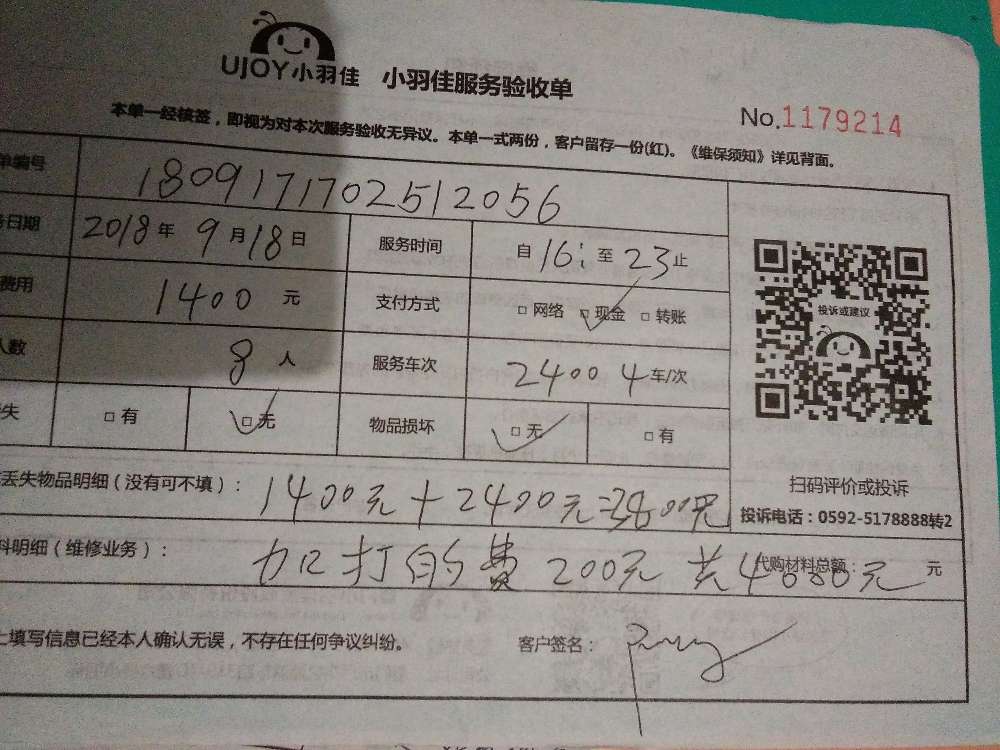 UJOY小羽佳 小羽佳服务验收单
No.1179214
本单一经核签，即视为对本次服务验收无异议。本单一式两份，客户留存一份(红)。《维保须知》详见背面。
单编号 180917170251 2056
务日期 2018年9月18日 服务时间 自16:至23止
费用 1400元 支付方式 □网络 □现金 □转账
人数 8人 服务车次 2400 4车/次
失 □有 □无 物品损坏 □无 □有
投诉或建议
扫码评价或投诉
投诉电话：0592-5178888转2
丢失物品明细（没有可不填）： 1400元+2400元=3800元
料明细（维修业务）： 加打的费200元 共4000元 代购材料总额： 元
上填写信息已经本人确认无误，不存在任何争议纠纷。 客户签名：